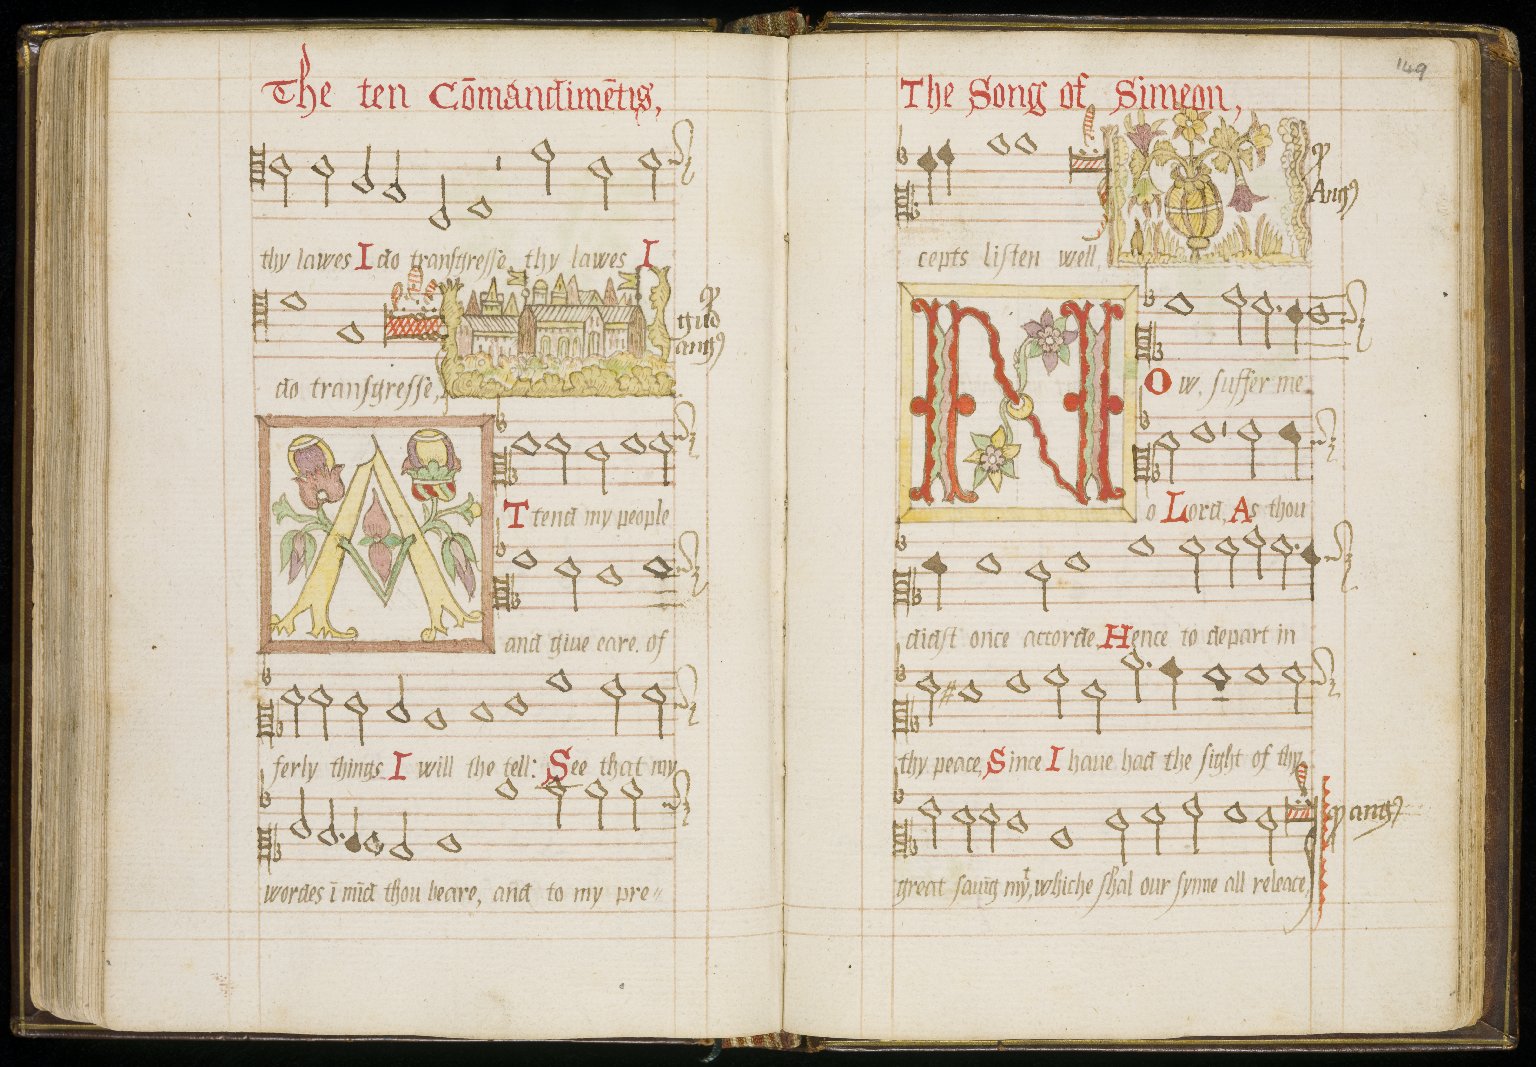 The ten Cōmandimētis,
thy lawes I do transgresse, thy lawes I
do transgresse,
quod
angus
A
Ttend my people
and giue eare. of
ferly things I will the tell: See that my
wordes ī mīd thou beare, and to my pre-
149
The Song of Simeon,
cepts listen well,
Angus
N
Ow. suffer me
o Lord, As thou
didst once accorde, Hence to depart in
thy peace, Since I haue had the sight of thy
great sauīg myt, whiche shal our synne all releace,
angus